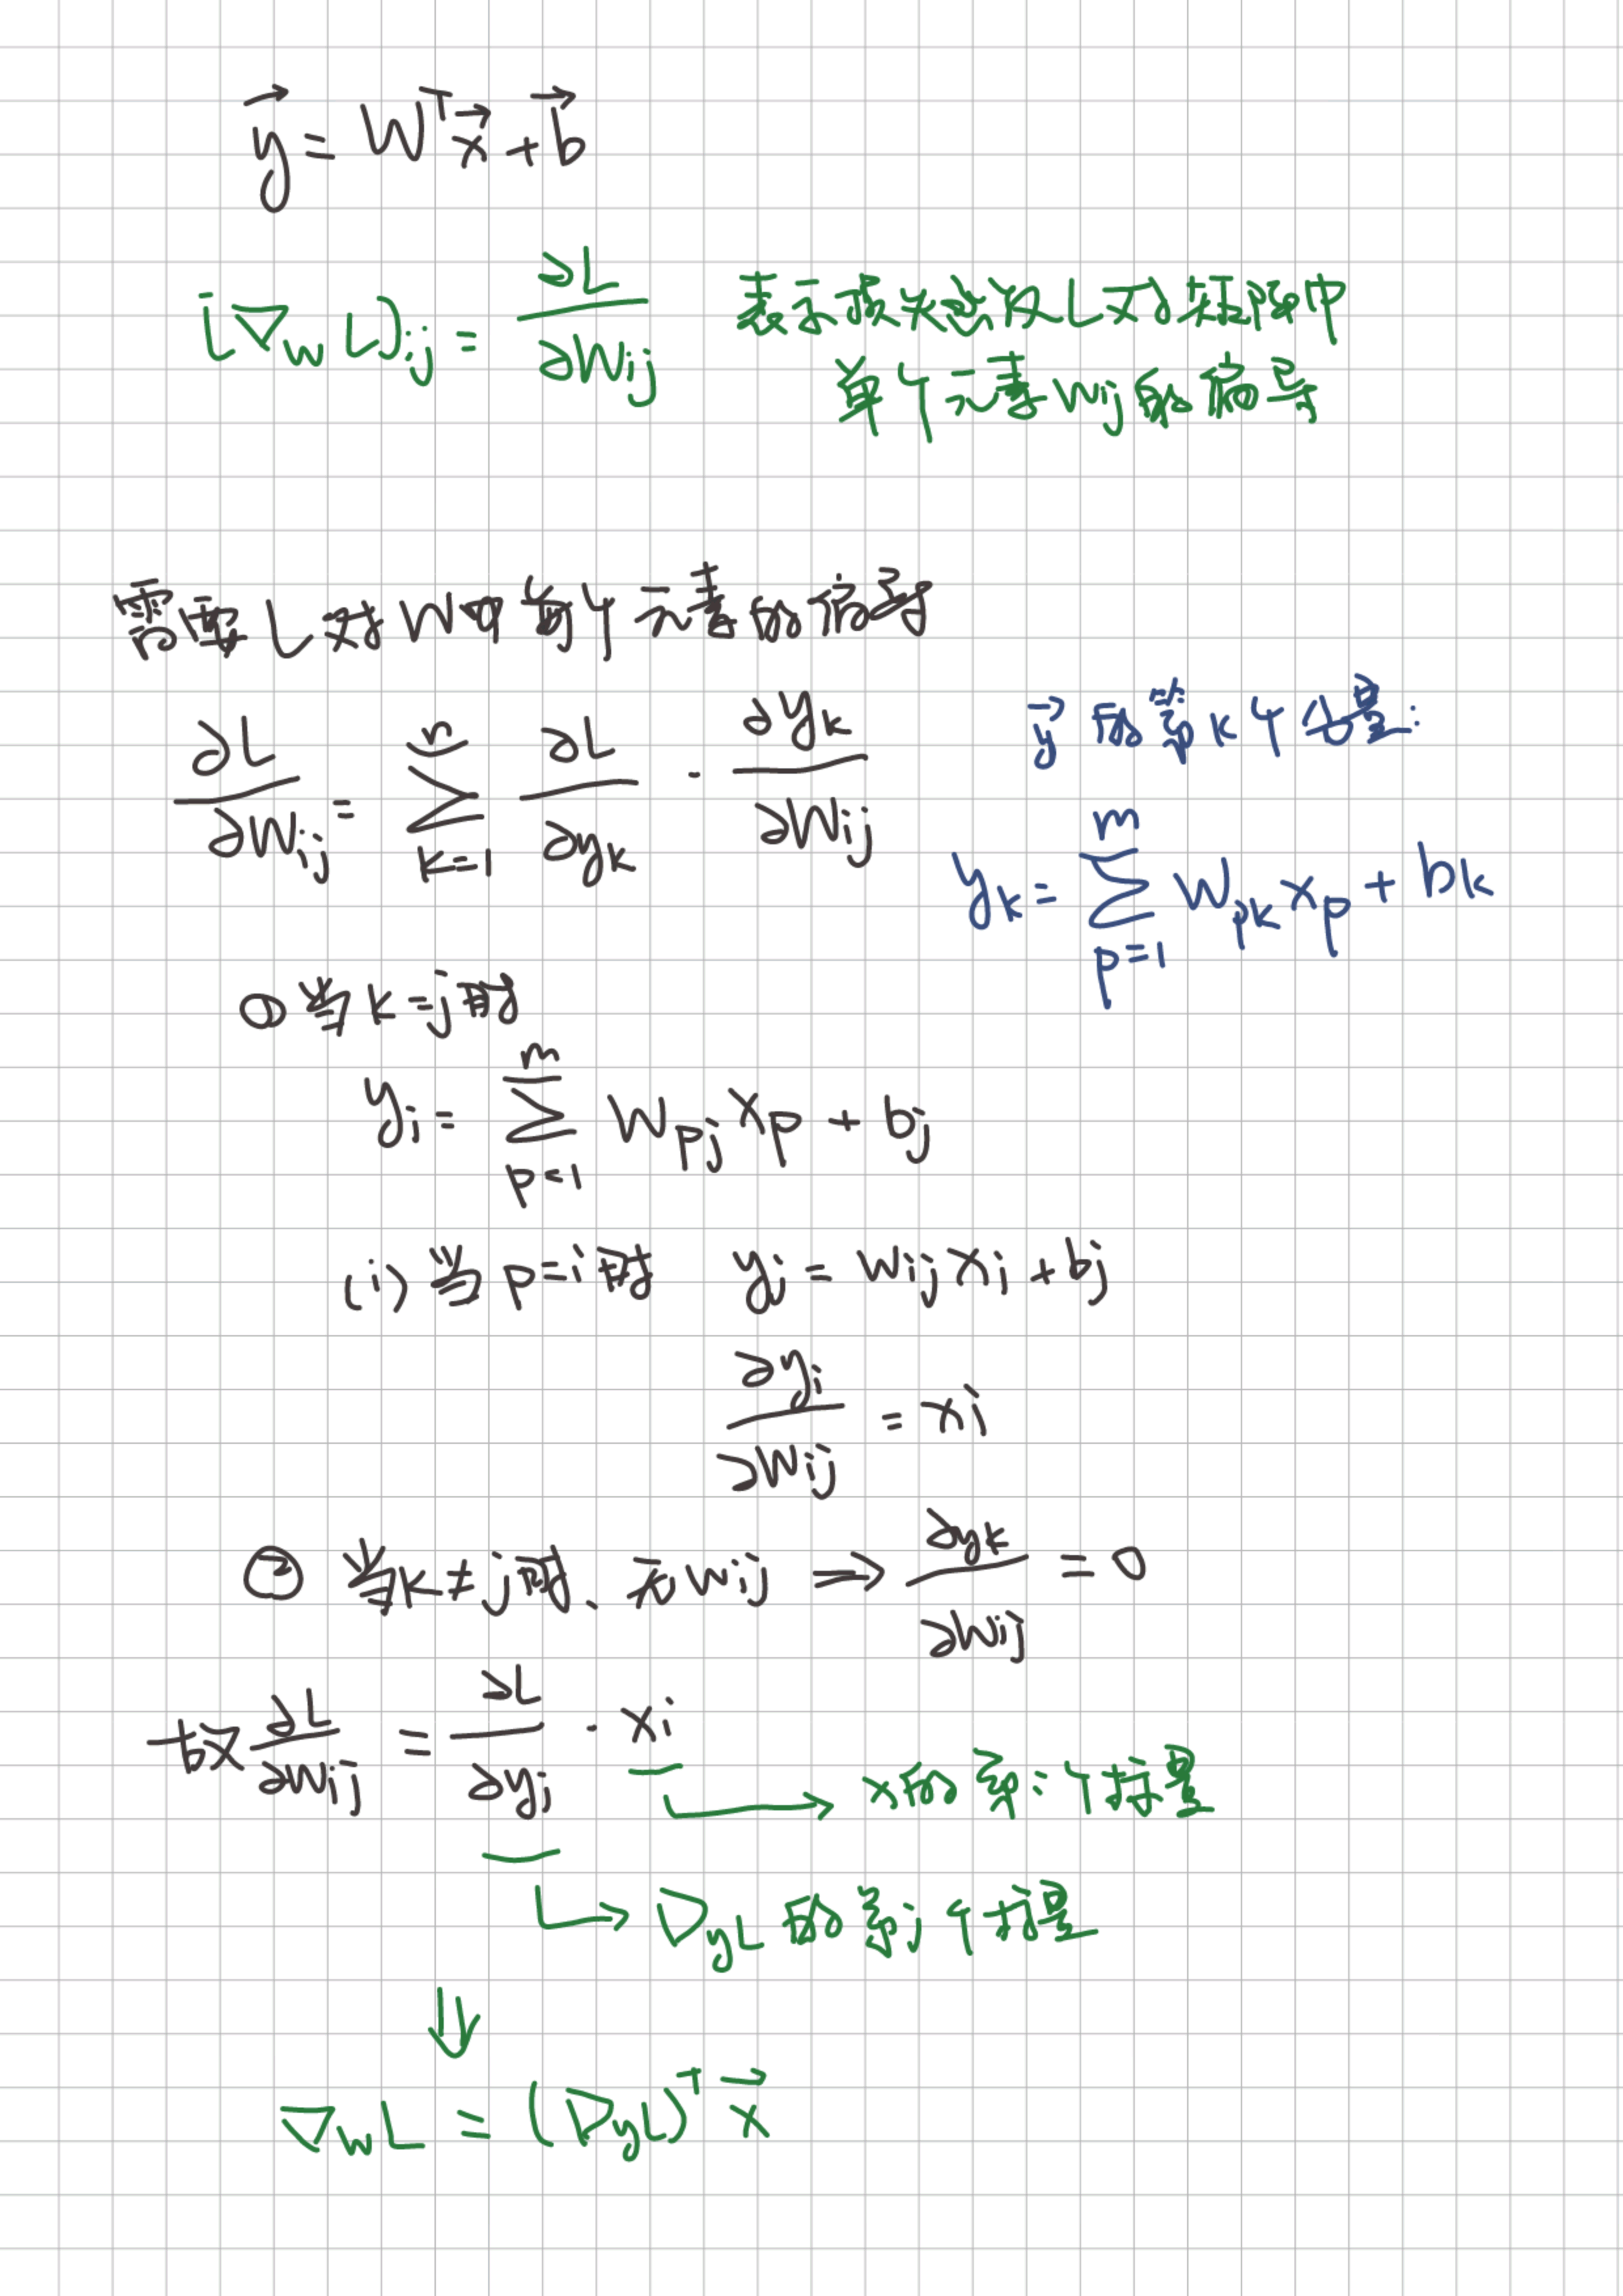 $\vec{y} = W^T\vec{x} + \vec{b}$
$[\nabla_W L]_{ij} = \frac{\partial L}{\partial W_{ij}}$ 表示损失函数L对矩阵中
单个元素Wij的偏导
需要L对W中每个元素的偏导
$\vec{y}$的第k个分量:
$\frac{\partial L}{\partial W_{ij}} = \sum_{k=1}^{n} \frac{\partial L}{\partial y_k} \cdot \frac{\partial y_k}{\partial W_{ij}}$
$y_k = \sum_{p=1}^{m} W_{pk} x_p + b_k$
① 当k=j时
$y_j = \sum_{p=1}^{m} W_{pj} x_p + b_j$
(i) 当p=i时 $y_j = w_{ij} x_i + b_j$
$\frac{\partial y_j}{\partial W_{ij}} = x_i$
② 当k≠j时、无wij $\Rightarrow \frac{\partial y_k}{\partial W_{ij}} = 0$
故 $\frac{\partial L}{\partial W_{ij}} = \frac{\partial L}{\partial y_j} \cdot x_i$
→ x的第i个标量
→ $\nabla_y L$ 的第j个标量
⇓
$\nabla_W L = (\nabla_y L)^T \vec{x}$